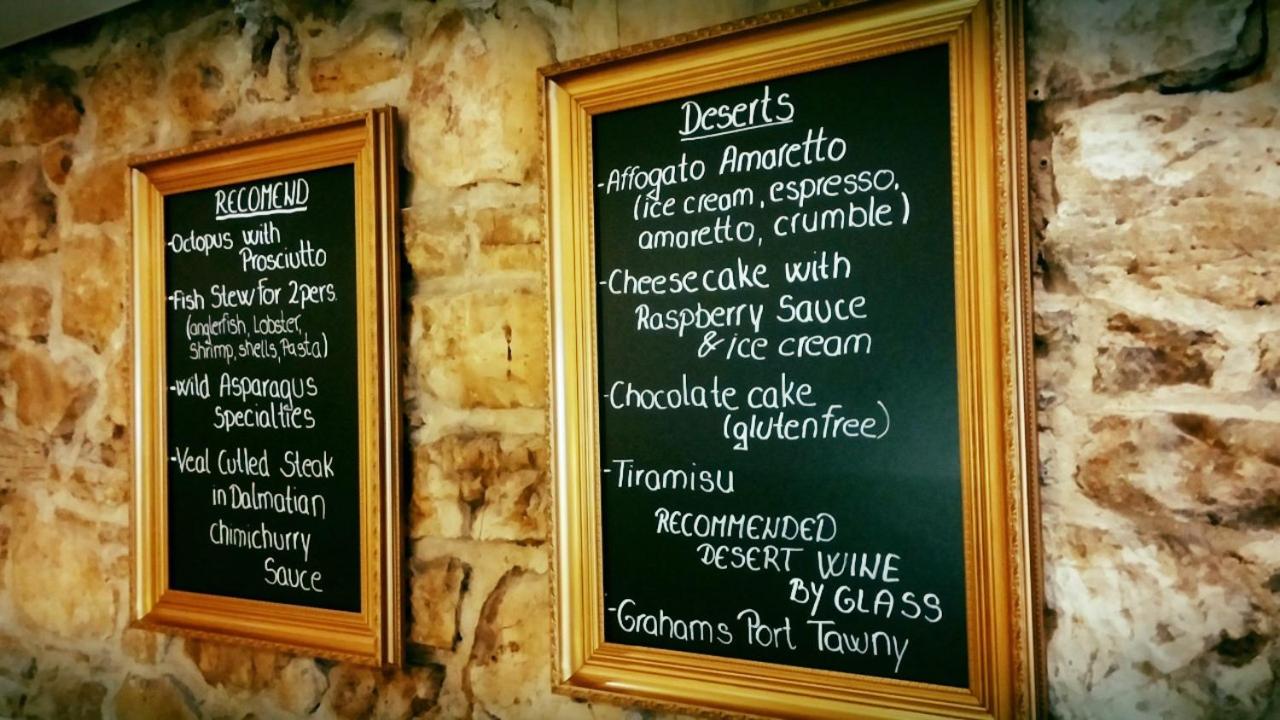 RECOMEND
-Octopus with
Prosciutto
-Fish Stew for 2pers.
(anglerfish, Lobster,
Shrimp, shells, Pasta)
-Wild Asparagus
Specialties
-Veal Cutled Steak
in Dalmatian
Chimichurry
Sauce
Deserts
-Affogato Amaretto
(ice cream, espresso,
amaretto, crumble)
-Cheesecake with
Raspberry Sauce
& ice cream
-Chocolate cake
(glutenfree)
-Tiramisu
RECOMMENDED
DESERT WINE
BY GLASS
-Grahams Port Tawny